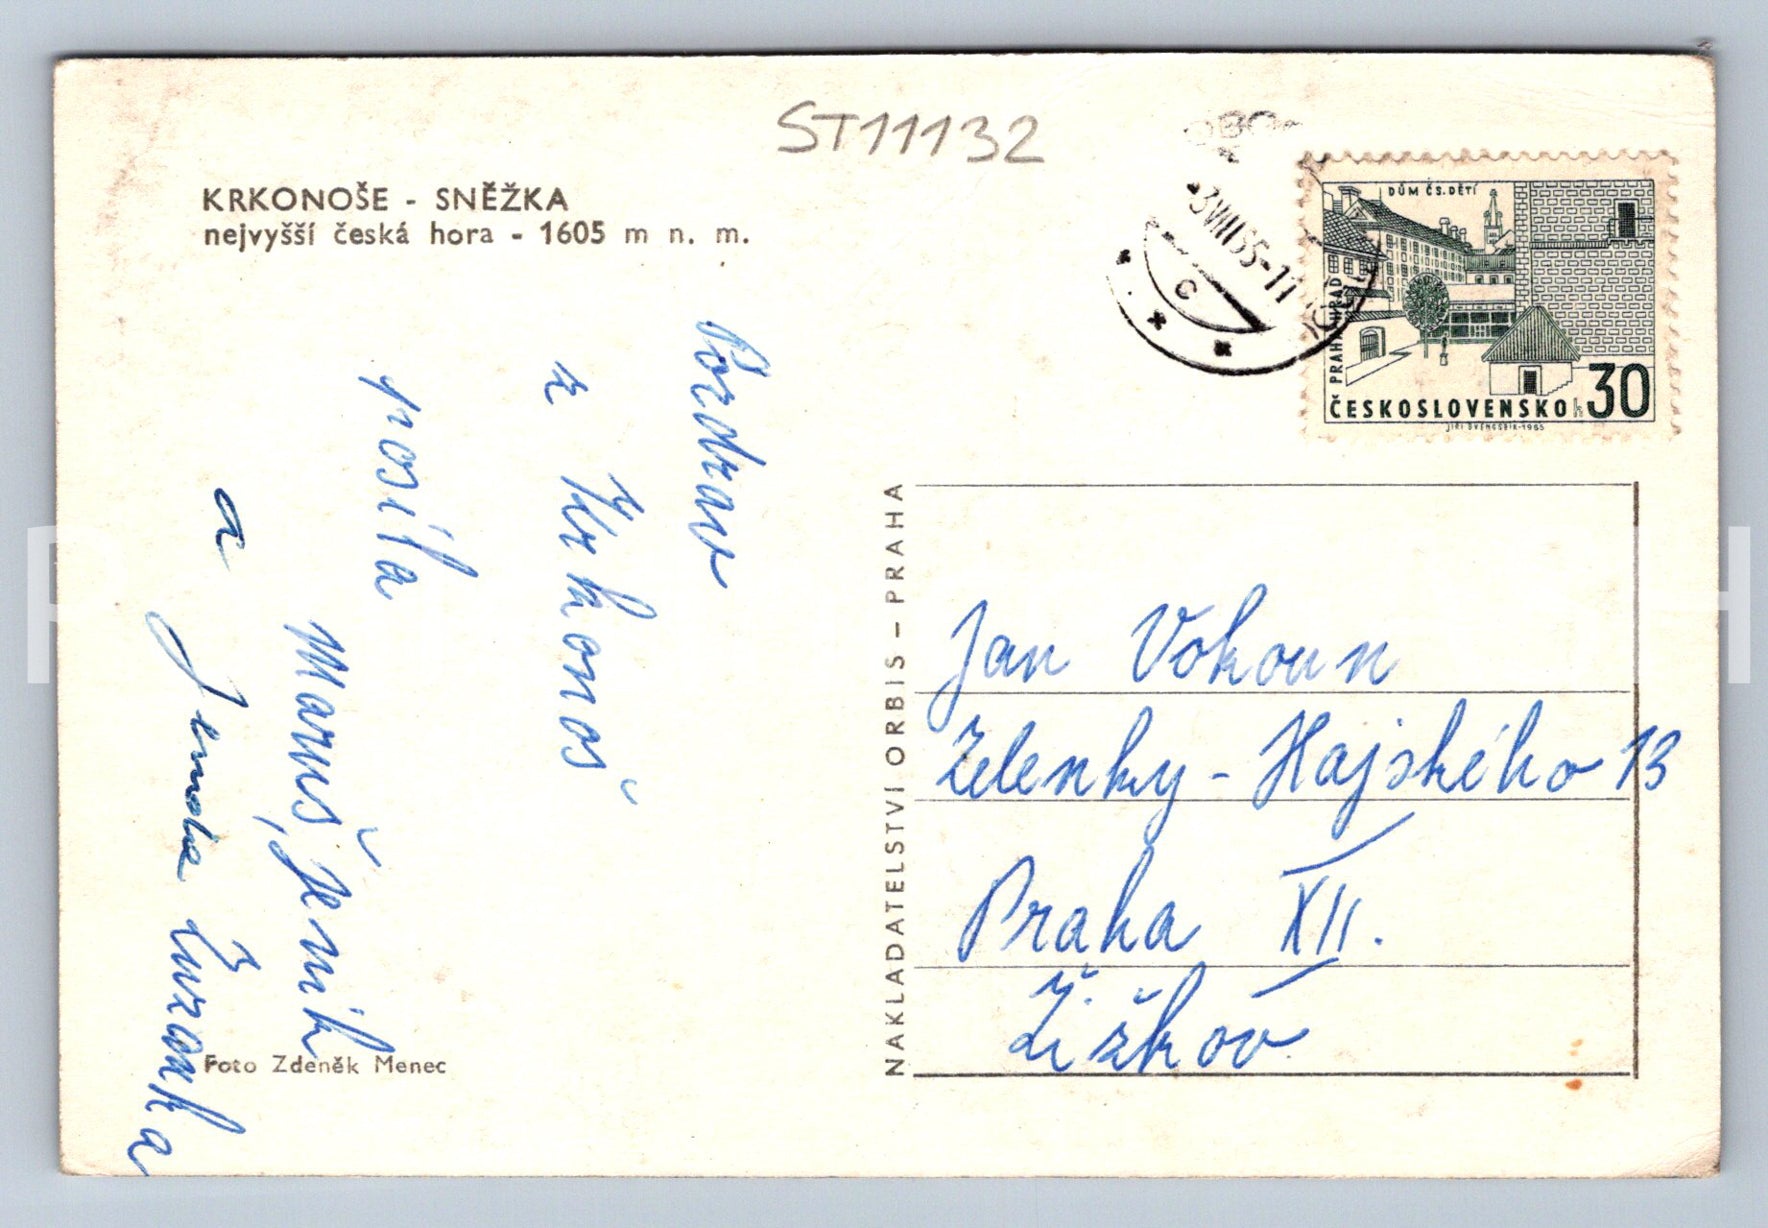 ST11132
KRKONOŠE - SNĚŽKA
nejvyšší česká hora - 1605 m n. m.
Pozdrav
z Krkonoš
posílá
Maruš, Jeník
a Jenda
Foto Zdeněk Menec
NAKLADATELSTVÍ ORBIS – PRAHA
3.VIII.65-11
C
DŮM ČS. DĚTÍ
PRAHA HRAD
ČESKOSLOVENSKO h 30
JIŘÍ ŠVENGSBÍR-1965
Jan Vokoun
Zelenky - Hajského 13
Praha XII.
Žižkov